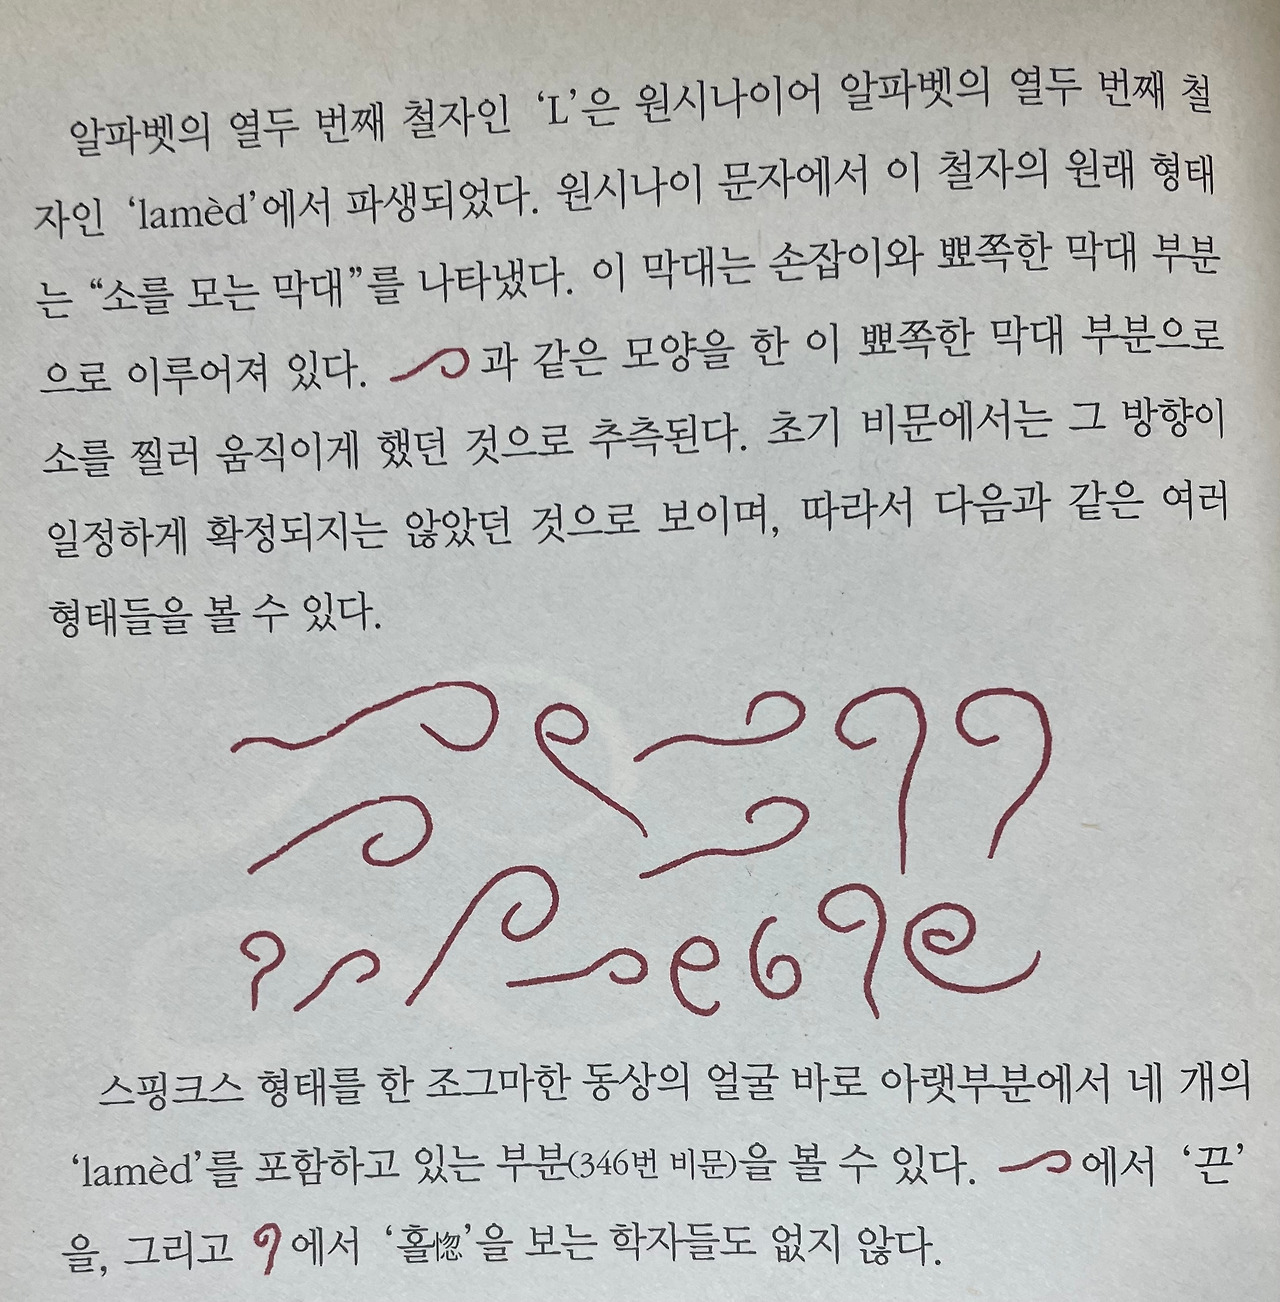 알파벳의 열두 번째 철자인 ‘L’은 원시나이어 알파벳의 열두 번째 철
자인 ‘lamèd’에서 파생되었다. 원시나이 문자에서 이 철자의 원래 형태
는 “소를 모는 막대”를 나타냈다. 이 막대는 손잡이와 뾰쪽한 막대 부분
으로 이루어져 있다. 과 같은 모양을 한 이 뾰쪽한 막대 부분으로
소를 찔러 움직이게 했던 것으로 추측된다. 초기 비문에서는 그 방향이
일정하게 확정되지는 않았던 것으로 보이며, 따라서 다음과 같은 여러
형태들을 볼 수 있다.
스핑크스 형태를 한 조그마한 동상의 얼굴 바로 아랫부분에서 네 개의
‘lamèd’를 포함하고 있는 부분(346번 비문)을 볼 수 있다. 에서 ‘끈’
을, 그리고 에서 ‘홀惚’을 보는 학자들도 없지 않다.